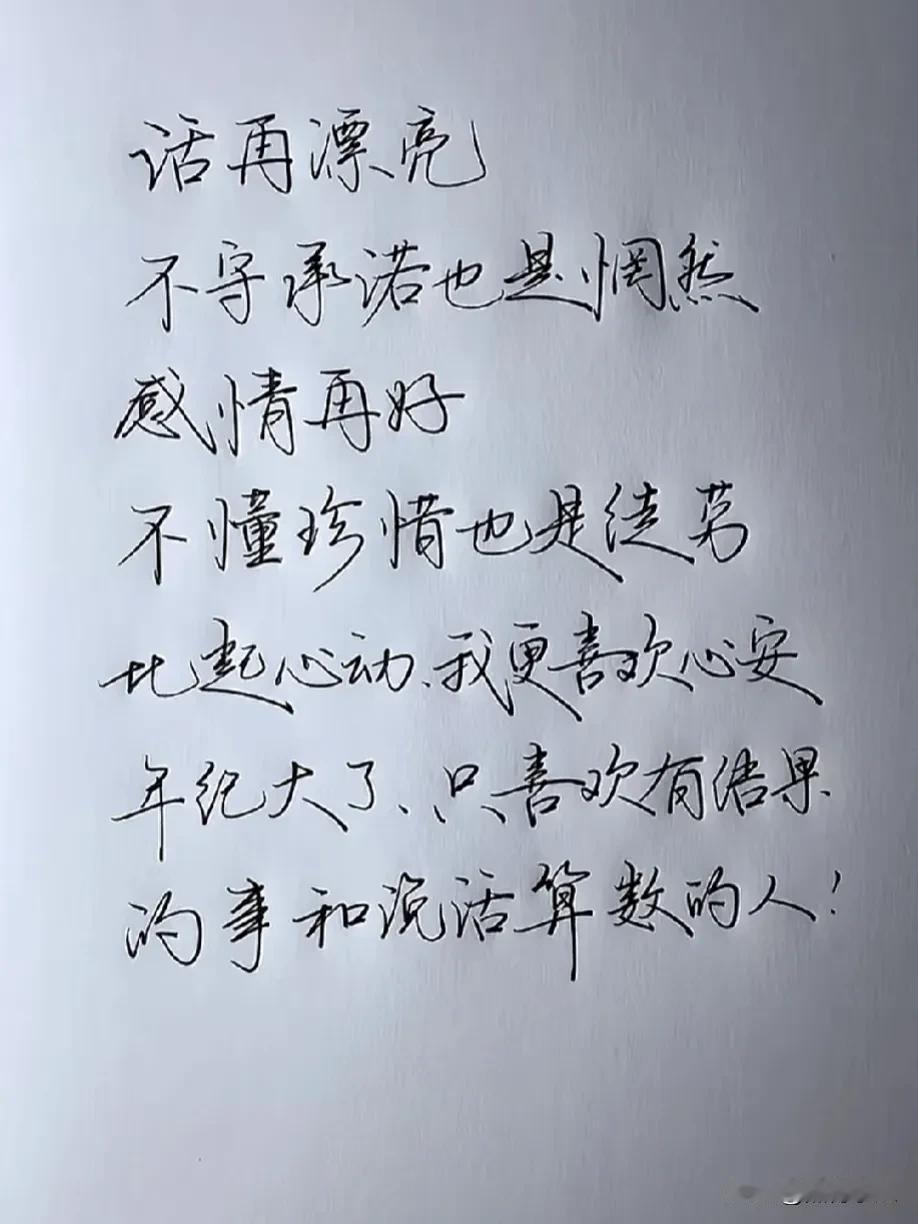 话再漂亮
不守承诺也是惘然
感情再好
不懂珍惜也是徒劳
比起心动、我更喜欢心安
年纪大了、只喜欢有结果
的事和说话算数的人!